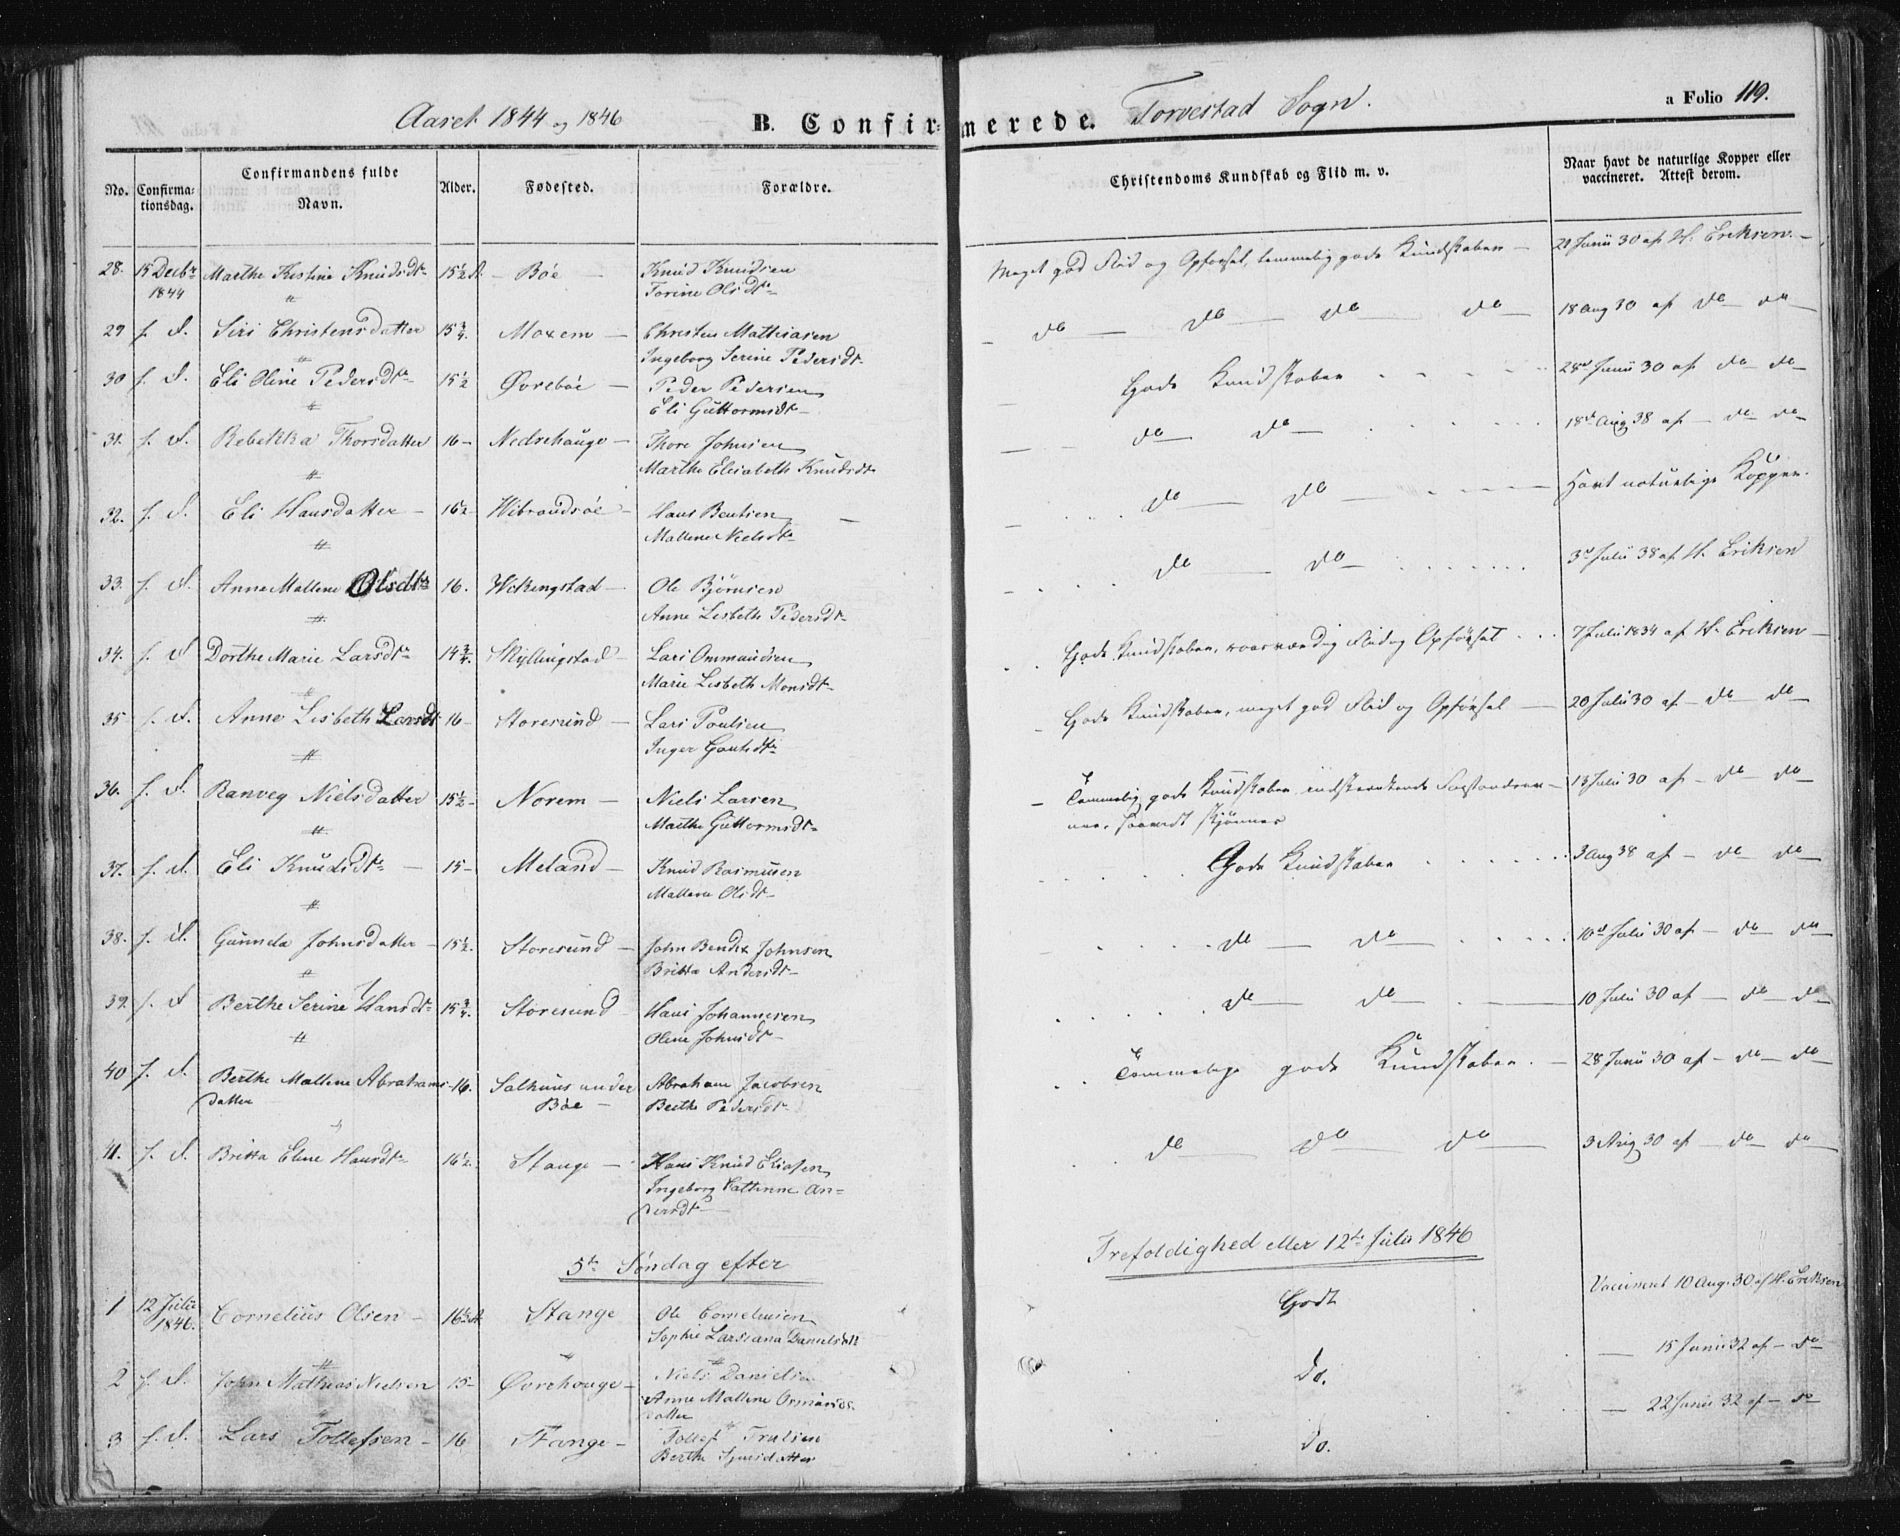 Aaret 1844 og 1846
B. Confirmerede.
Torvestad Sogn.
a Folio 119.
No. Confirmationsdag. Confirmandens fulde Navn. Alder. Fødested. Forældre. Christendoms Kundskab og Flid m. v. Naar havt de naturlige Kopper eller vaccineret. Attest derom.
28. 15 Decbr 1844 Marthe Kistine Knudsdtr 15½ A. Bøe Knud Knudsen Meget god Flid og Opførsel, temmelig gode Kundskaber 20 Junii 30 af H. Eriksen
Torine Olsdtr
29 f. d. Siri Christensdatter 15¾. Moxem Christen Mathiasen do do do do 18 Aug 30 af do do
Ingeborg Serine Pedersdt
30 f. d. Eli Oline Pedersdtr 15½ Øvrebøe Peder Pedersen Gode Kundskaber 28de Junii 30 af do do
Eli Guttormsdt
31. f. d. Rebekka Thorsdatter 16 Nedrehauge Thore Johnsen do do 18de Aug 38 af do do
Marthe Elisabeth Knudsdt
32. f. d. Eli Hansdatter 16½ Wibrandsøe Hans Bentsen do do Havt naturlige Kopper.
Mallene Nielsdtr
33. f. d. Anne Mallene Olsdtr 16. Wikingstad Ole Bjørnsen do do 3de Julii 38 af H. Eriksen
Anne Lisbeth Pedersdt
34. f. d Dorthe Marie Larsdtr 14¾. Skyllingstad Lars Ommundsen Gode Kundskaber, roesværdig Flid og Opførsel 7 Julii 1834 af H. Eriksen
Marie Lisbeth Monsdt
35 f. d. Anne Lisbeth Larsdt 16 Storesund Lars Poulsen Gode Kundskaber, meget god Flid og Opførsel 20 Julii 30 af do do
Inger Gautsdtr
36. f. d. Ranveg Nielsdatter 15½ Norem Niels Larsen Temmelig gode Kundskaber 13 Julii 30 af do do
Marthe Guttormsdt
37. f. d. Eli Knudsdtr 15 Meland Knud Rasmusen Gode Kundskaber 3 Aug 38 af do do
Mallene Olsdt
38. f. d. Gunnda Johnsdatter 15½. Storesund John Bendix Johnsen do do 10de Julii 30 af do do
Britta Andersdt
39. f. d Berthe Serine Hansdt 15¾. Storesund Hans Johannesen do do 10 Julii 30 af do do
Oline Johnsdt
40 f. d. Berthe Mallene Abrahams 16. Salhuus under Abraham Jacobsen Temmelige gode Kundskaber. 28 Junii 30 af do do
datter Bøe Berthe Pedersdt
41. f. d. Britta Eline Hansdtr 16½. Stange Hans Knud Eliasen do do do 3 Aug 30 af do do
Ingeborg Cathrine An=
dersdt
5te Søndag efter Trefoldighed eller 12te Julii 1846
1 12 Julii 1846. Cornelius Olsen 16 A. Stange Ole Corneliusen Godt Vaccineret 10 Aug. 30 af H. Eriksen
Sophie Larsiana Danielsdtr
2 f. d. John Mathias Nielsen 15 Øvrehouge Niels Danielsen do. 15 Junii 32 af do
Anne Mallene Ormunds
datter
3 f. d. Lars Tollefsen 16 Stange Tollef Trulsen do. 22 Junii 32 af do
Berthe Sjursdatter